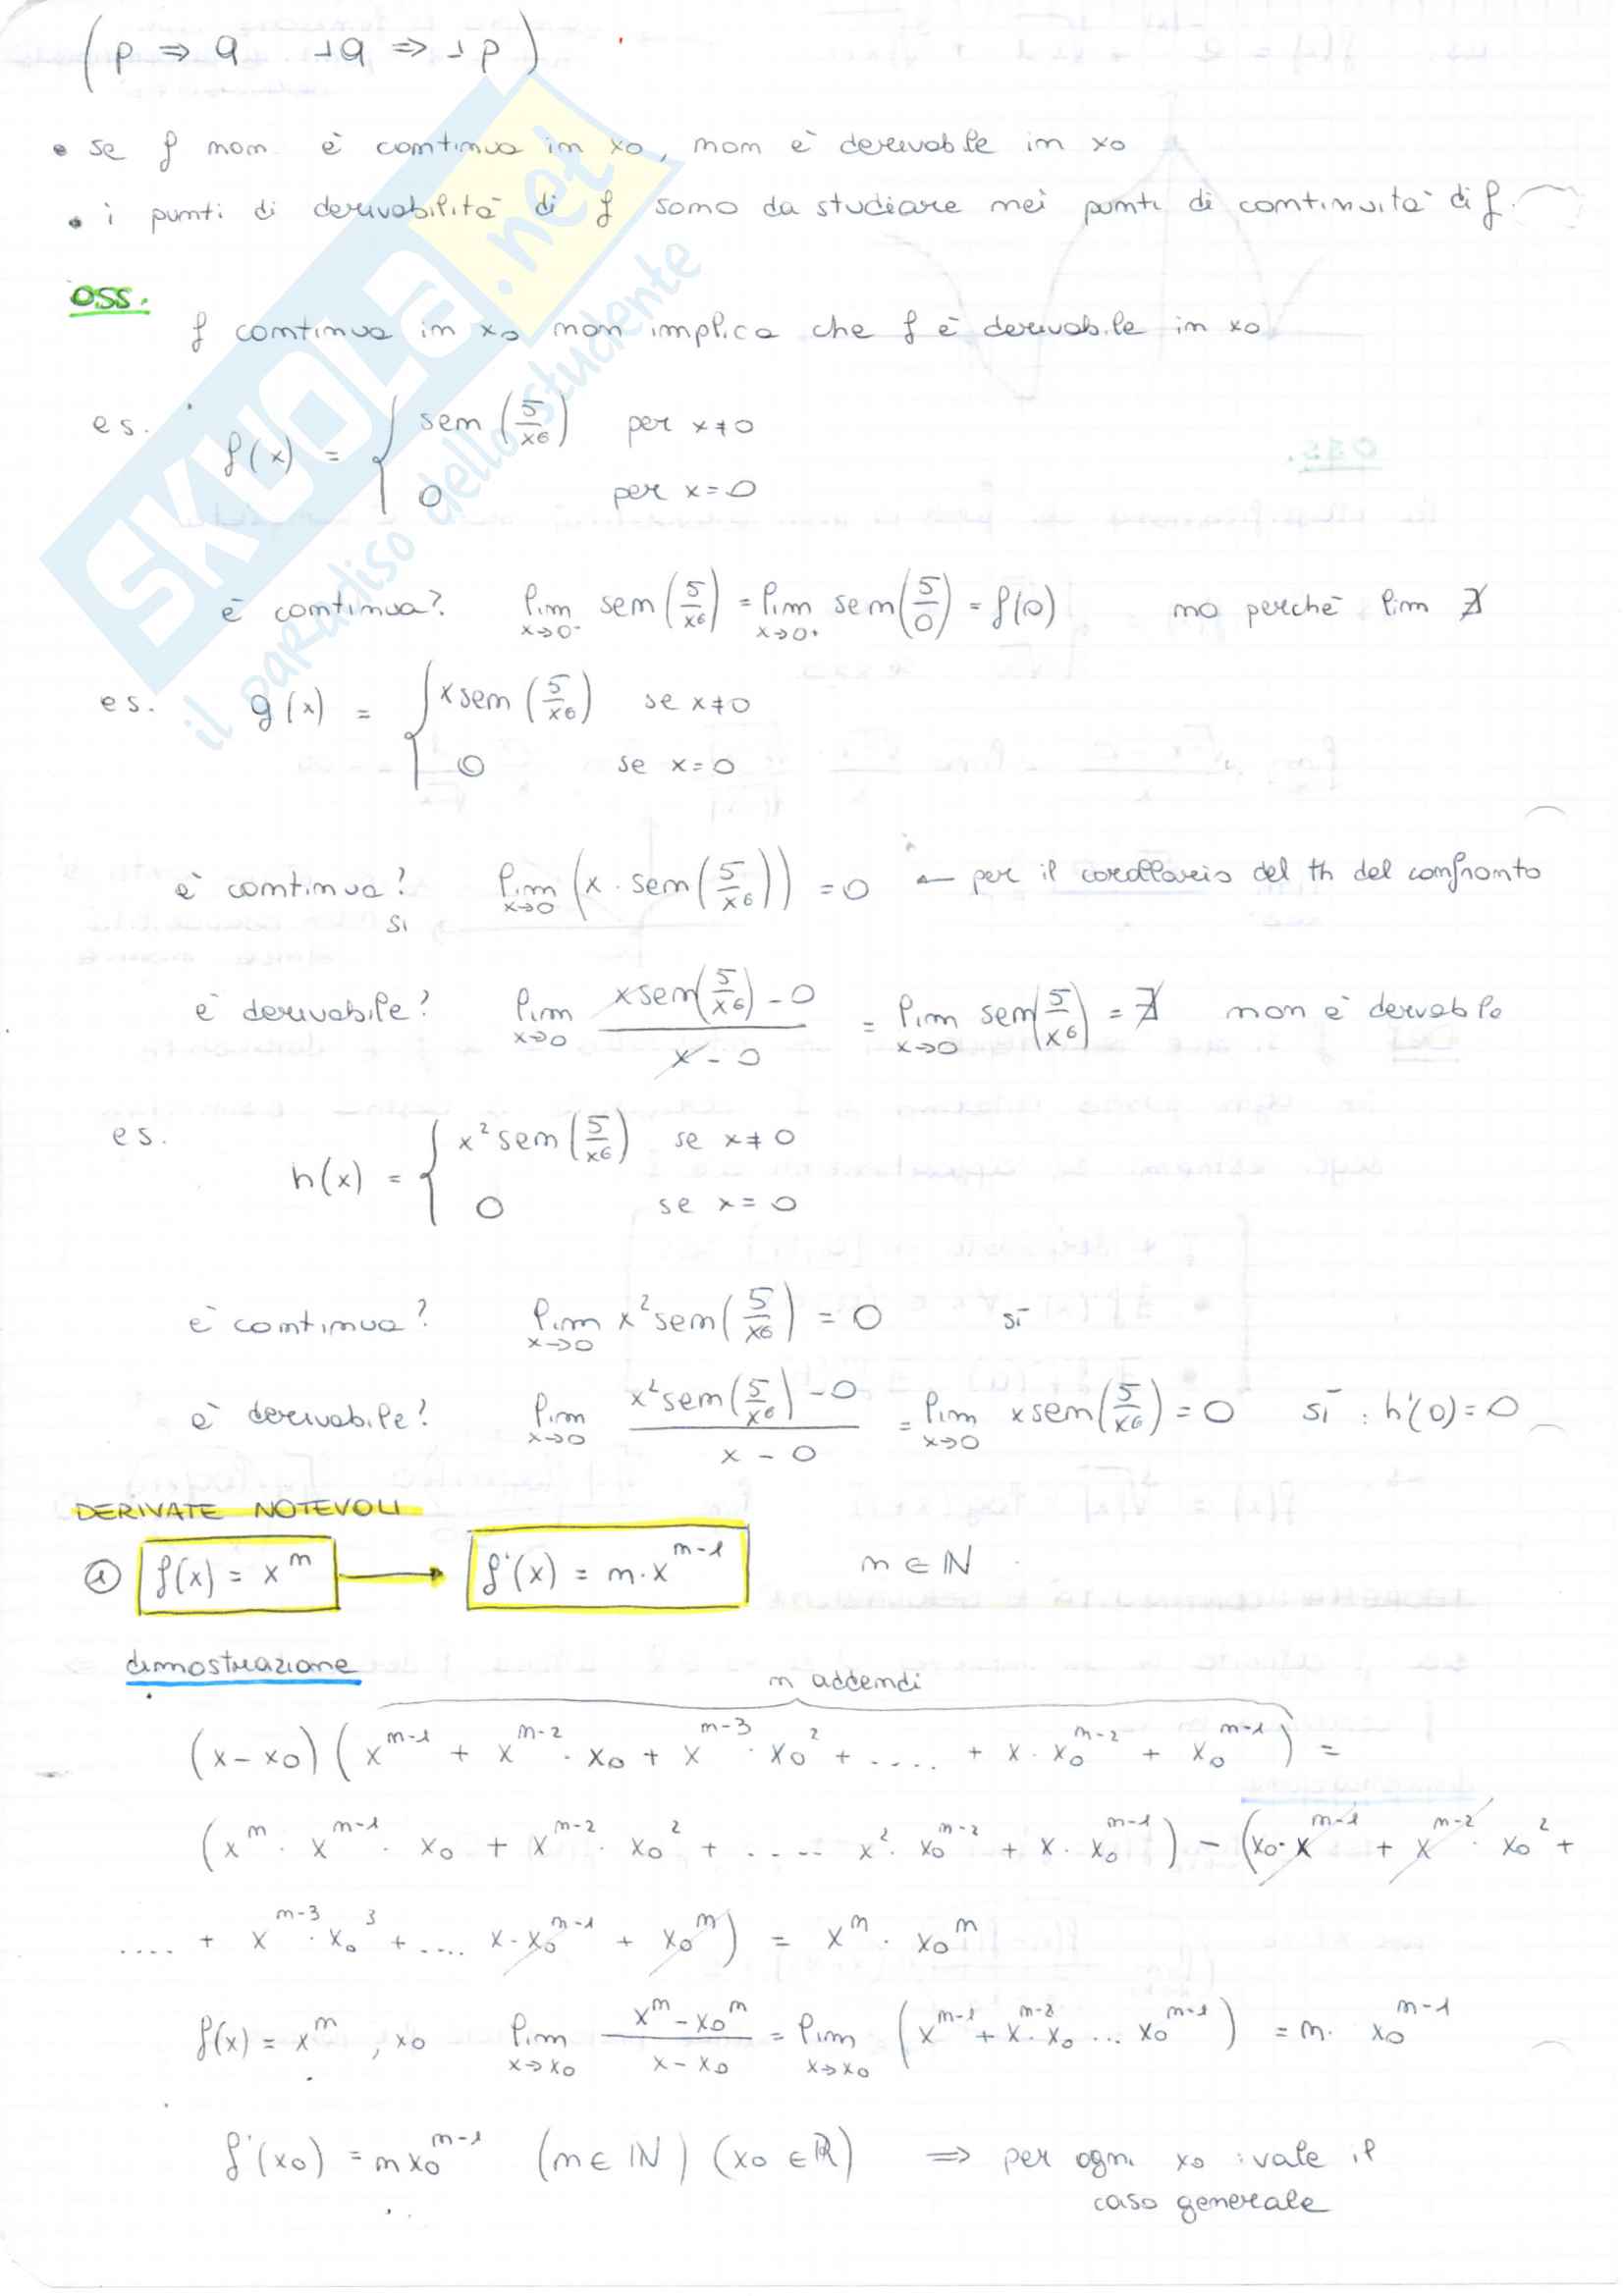 (p ⇒ q   ¬q ⇒ ¬p)
• se f non è continua in x₀, non è derivabile in x₀
• i punti di derivabilità di f sono da studiare nei punti di continuità di f.
OSS.
f continua in x₀ non implica che f è derivabile in x₀
es. f(x) = { sen(5/x⁶) per x≠0
0 per x=0
è continua? lim x→0⁻ sen(5/x⁶) = lim x→0⁺ sen(5/0) = f(0)   no perchè lim ∄
es. g(x) = { x sen(5/x⁶) se x≠0
0 se x=0
è continua? lim x→0 (x · sen(5/x⁶)) = 0 ← per il corollario del th del confronto
si
è derivabile? lim x→0 (x sen(5/x⁶) - 0)/(x - 0) = lim x→0 sen(5/x⁶) = ∄ non è derivabile
es. h(x) = { x² sen(5/x⁶) se x≠0
0 se x=0
è continua? lim x→0 x² sen(5/x⁶) = 0   sì
è derivabile? lim x→0 (x² sen(5/x⁶) - 0)/(x - 0) = lim x→0 x sen(5/x⁶) = 0   sì : h'(0) = 0
DERIVATE NOTEVOLI
① f(x) = xⁿ → f'(x) = n·xⁿ⁻¹   n ∈ ℕ
dimostrazione
n addendi
(x-x₀)(xⁿ⁻¹ + xⁿ⁻²·x₀ + xⁿ⁻³·x₀² + .... + x·x₀ⁿ⁻² + x₀ⁿ⁻¹) =
(xⁿ · xⁿ⁻¹ · x₀ + xⁿ⁻²·x₀² + ..... x²·x₀ⁿ⁻² + x·x₀ⁿ⁻¹) - (x₀·xⁿ⁻¹ + xⁿ⁻²·x₀² +
.... + xⁿ⁻³·x₀³ + .... x·x₀ⁿ⁻¹ + x₀ⁿ) = xⁿ · x₀ⁿ
f(x) = xⁿ, x₀   lim x→x₀ (xⁿ - x₀ⁿ)/(x - x₀) = lim x→x₀ (xⁿ⁻¹ + xⁿ⁻²·x₀ ... x₀ⁿ⁻¹) = n· x₀ⁿ⁻¹
f'(x₀) = n x₀ⁿ⁻¹   (n ∈ ℕ) (x₀ ∈ ℝ)   ⇒ per ogni x₀ : vale il
caso generale
SKUOLA.net
il paradiso dello studente